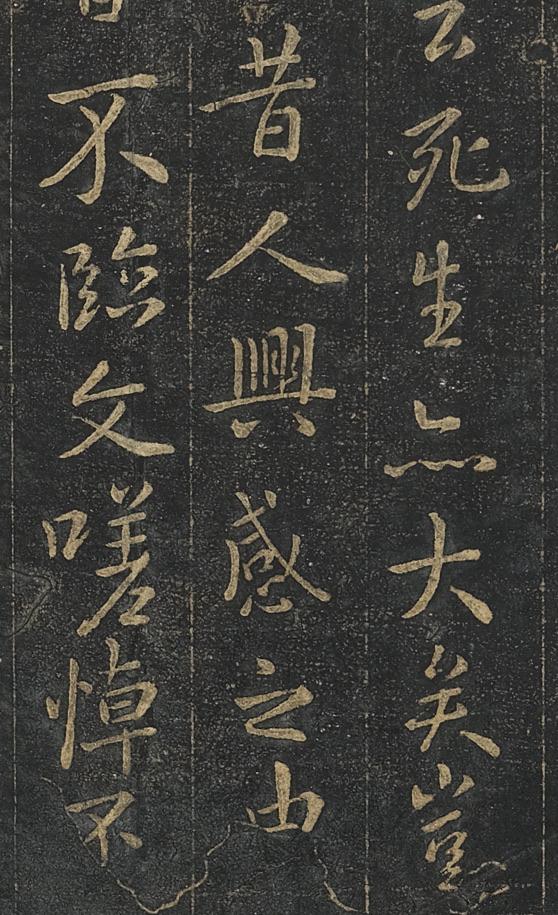 云死生亦大矣豈
昔人興感之由
不臨文嗟悼不